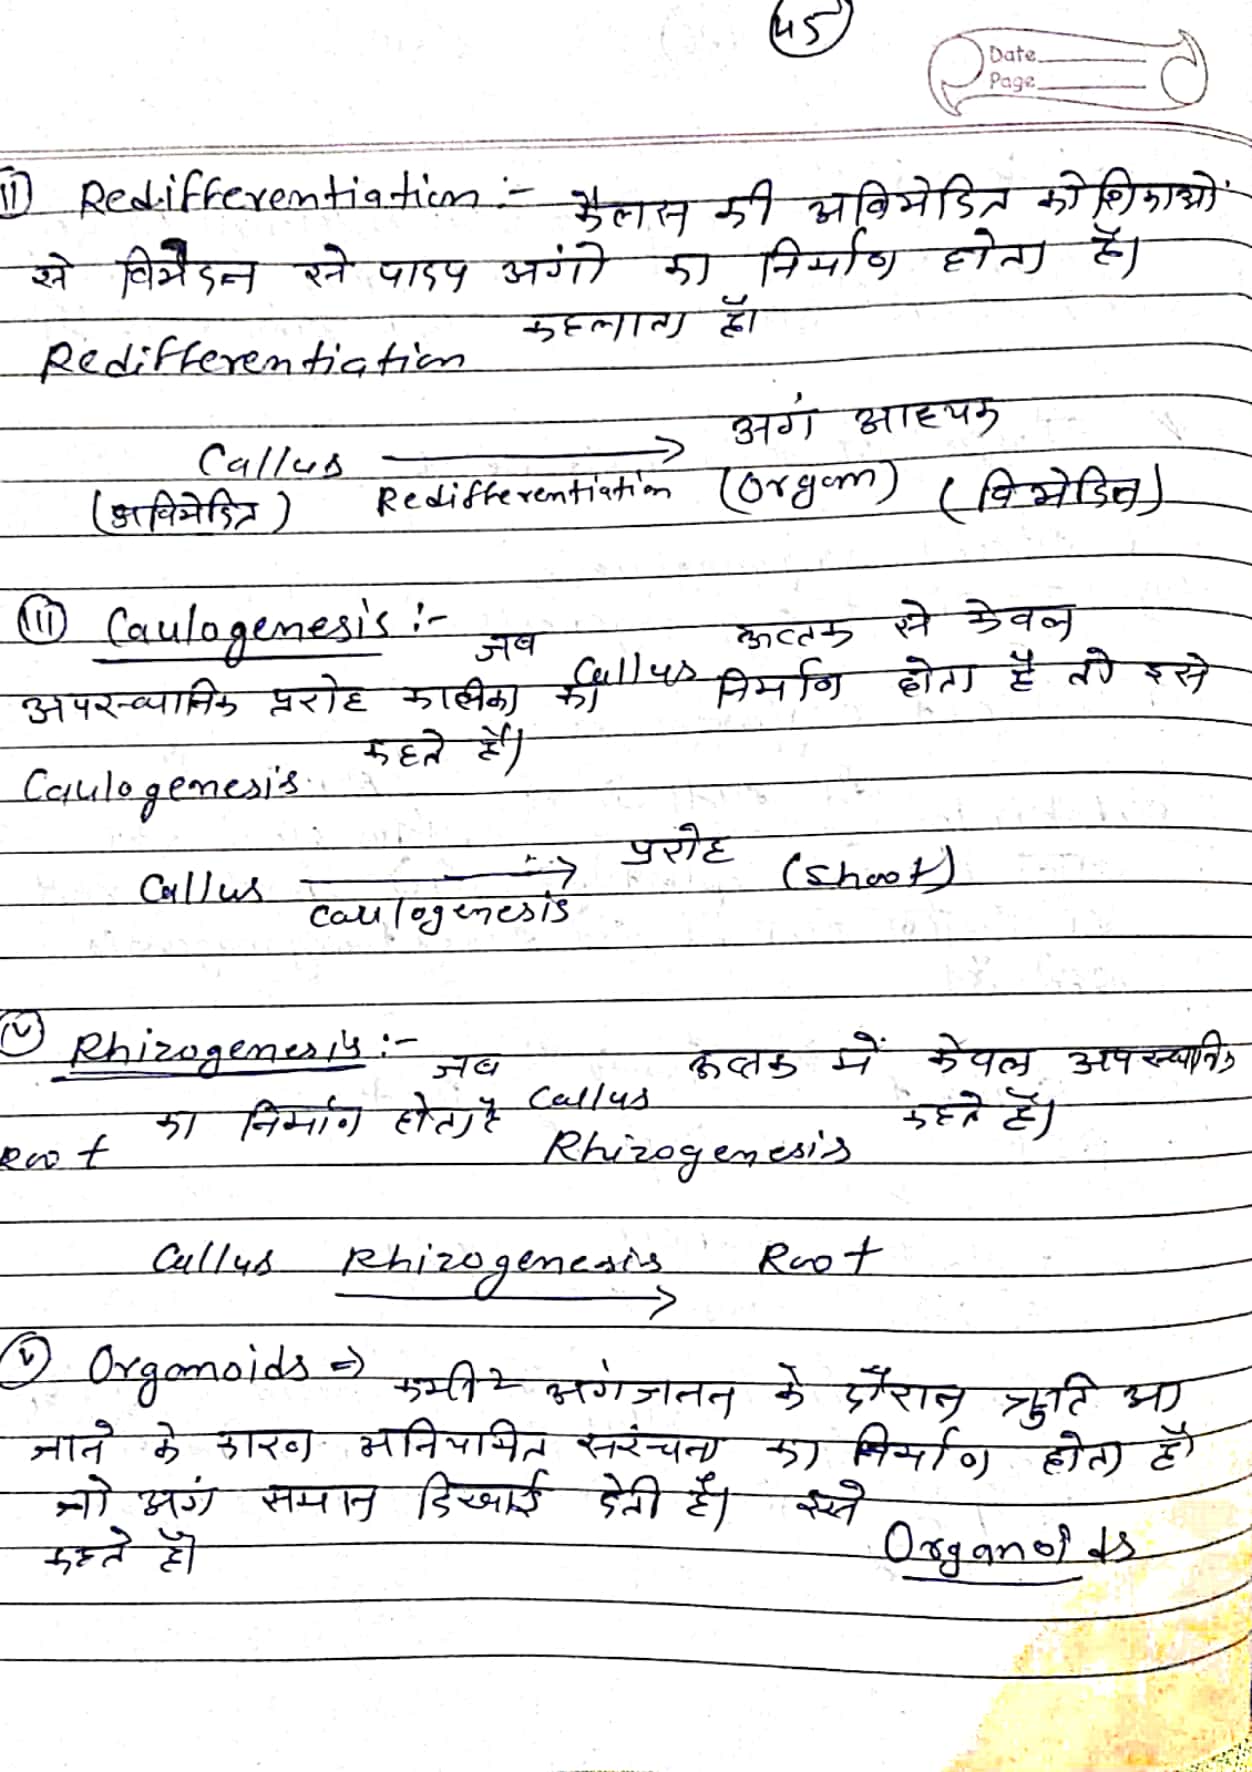 45
Date
Page
ii) Redifferentiation :- कैलस की अविभेदित कोशिकाओं
से विभेदन से पादप अगों का निर्माण होता है।
Redifferentiation कहलाता है।
Callus → अगं
(अविभेदित) Redifferentiation (Organ) (विभेदित)
(iii) Caulogenesis :- जब Callus ऊत्तक से केवल
अपस्थानिक प्ररोह का निर्माण होता है तो इसे
Caulogenesis कहते हैं।
Callus → प्ररोह (Shoot)
Caulogenesis
Rhizogenesis :- जब Callus ऊत्तक में केवल अपस्थानिक
Root का निर्माण होता है Rhizogenesis कहते हैं।
Callus Rhizogenesis → Root
Organoids ⇒ कभी २ अगंजनन के दौरान त्रुटि आ
जाने के कारण अनियमित सरंचना का निर्माण होता है
जो अगं समान दिखाई देती है। इसे Organoids
कहते हैं